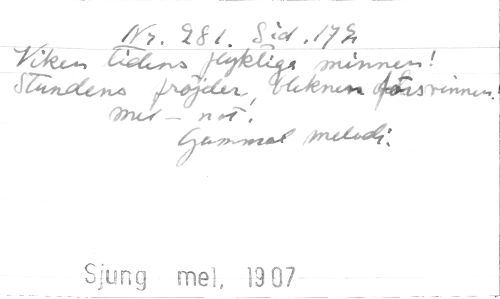 Nr. 281. Sid. 172
Viken tidens flyktiga minnen!
Stundens fröjder, bleknen försvinnen!
mel-not.
Gammal melodi.
Sjung mel, 1907